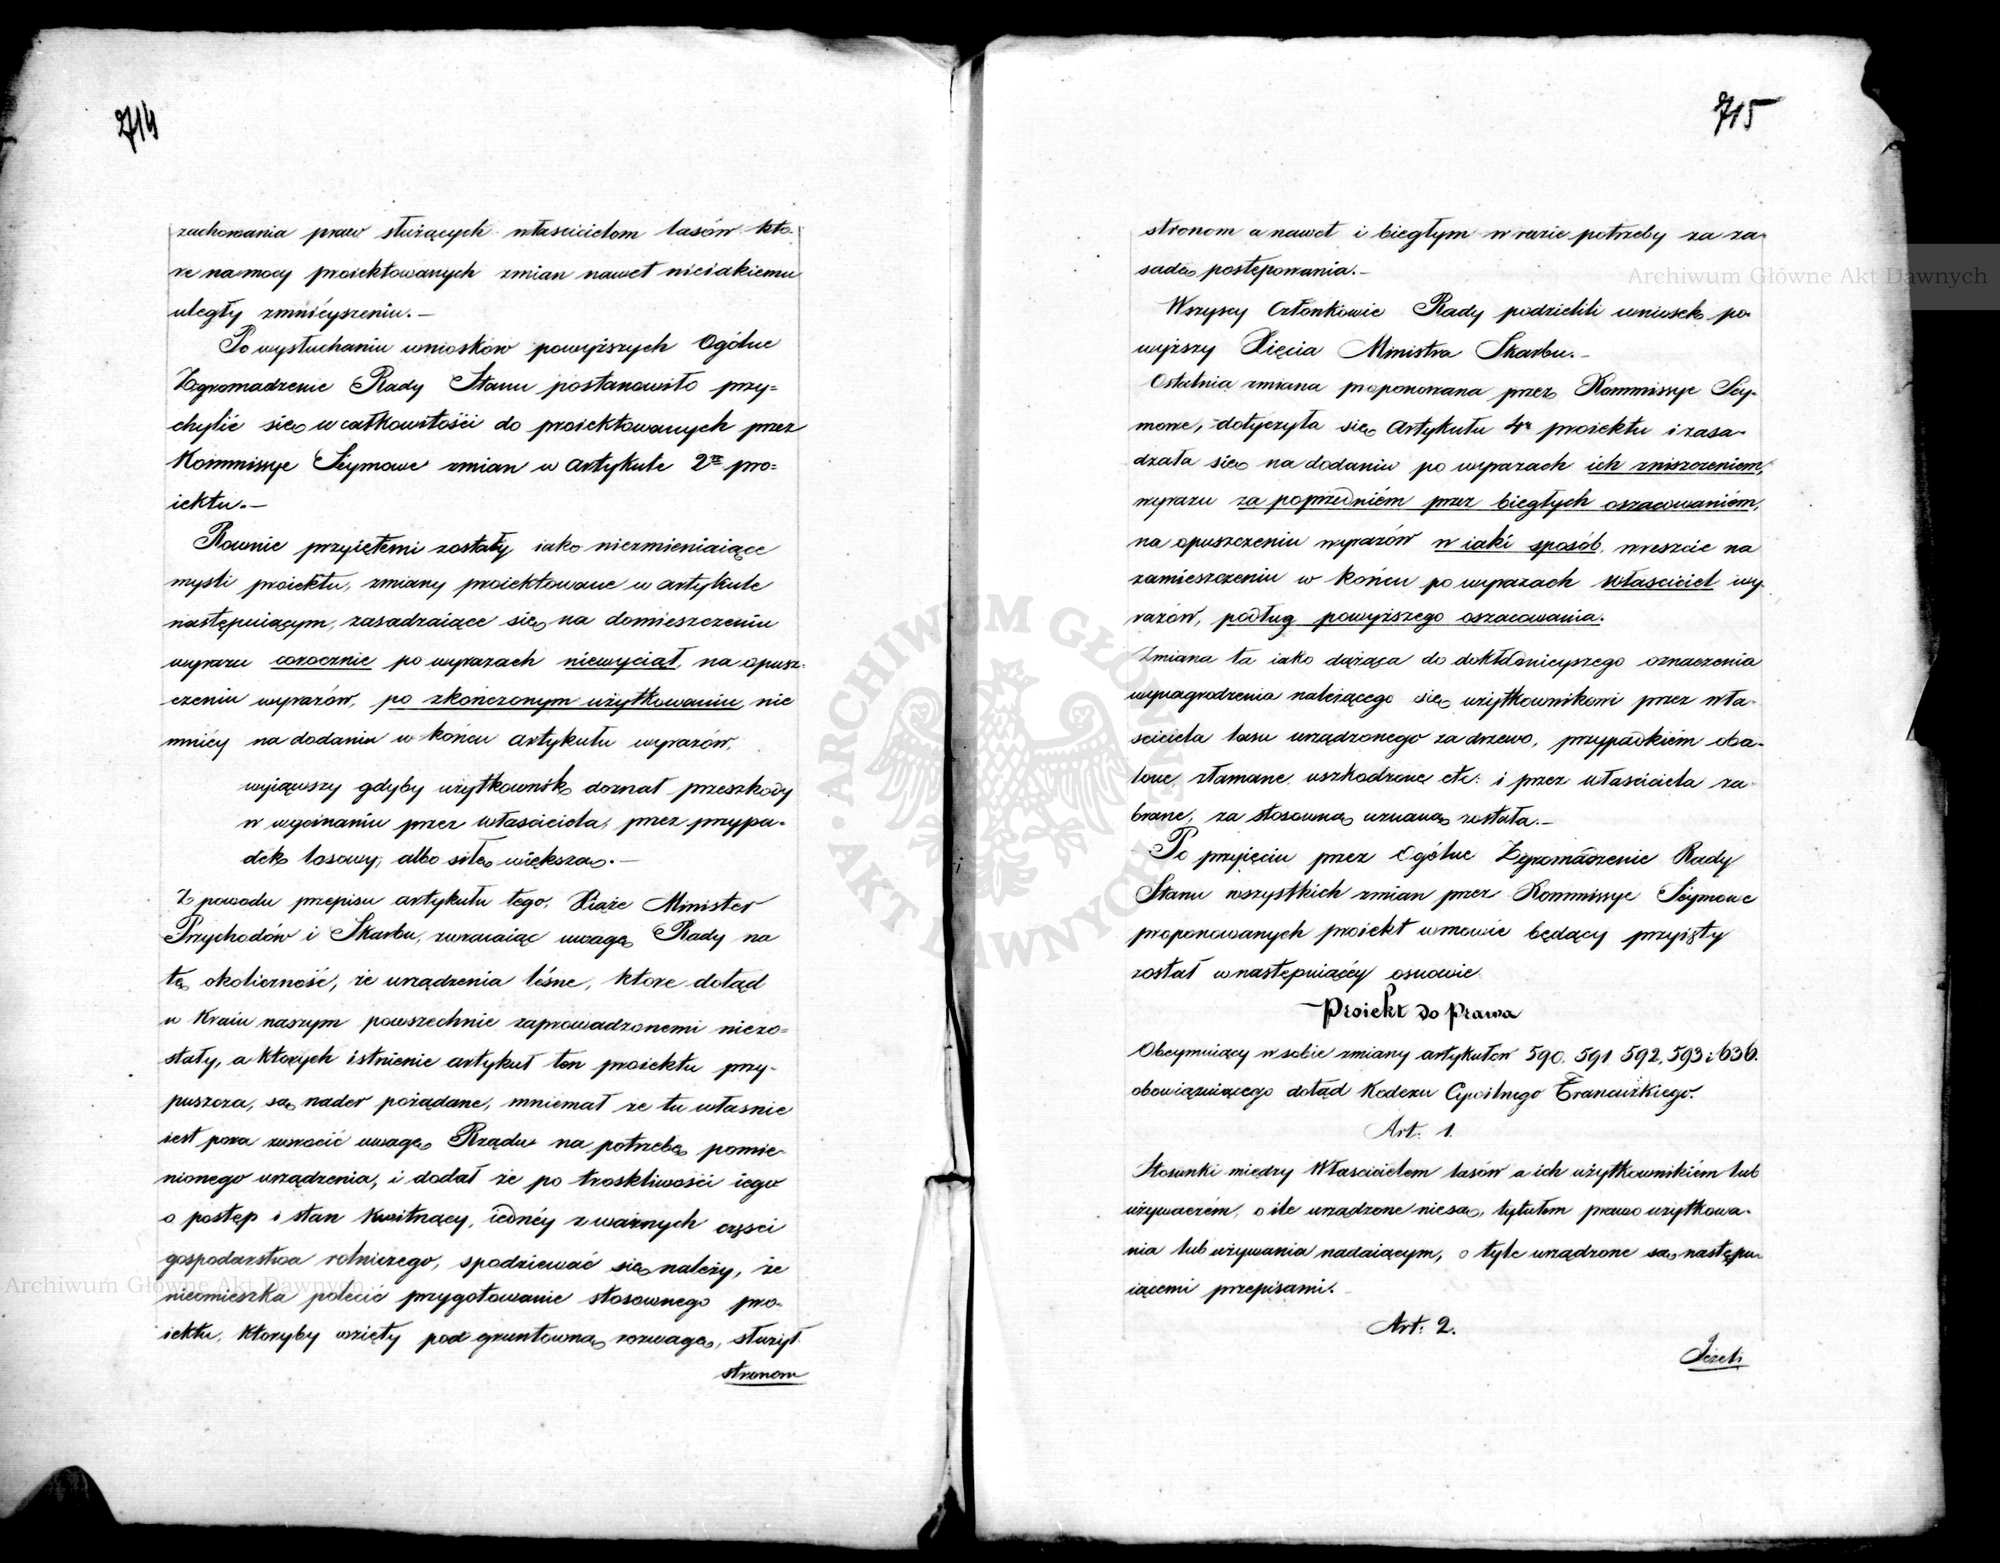 714
zachowania praw służących właścicielom lasów któ-
re na mocy proiektowanych zmian nawet nieiakiemu
uległy zmnieyszeniu.—
Po wysłuchaniu wniosków powyższych Ogólne
Zgromadzenie Rady Stanu postanowiło przy-
chylić się w całkowitości do proiektowanych przez
Kommissye Seymowe zmian w artykule 2m pro-
iektu.—
Rownie przyiętemi zostały iako niezmieniaiące
myśli proiektu, zmiany proiektowane w artykule
następuiącym, zasadzaiące się na domieszczeniu
wyrazu corocznie po wyrazach niewyciął, na opusz-
czeniu wyrazów, po skończonym użytkowaniu, nie
mniéy na dodaniu w końcu artykułu wyrazów,
wyiąwszy gdyby użytkownik doznał przeszkody
w wycinaniu przez właściciela, przez przypa-
dek losowy, albo siłę większą.—
Z powodu przepisu artykułu tego, Xiąże Minister
Przychodów i Skarbu, zwracaiąc uwagę Rady na
tę okoliczność, że urządzenia leśne, które dotąd
w Kraiu naszym powszechnie zaprowadzonemi niezo-
stały, a których istnienie artykuł ten proiektu przy-
puszcza, są nader pożądane, mniemał że tu właśnie
iest pora zwrócić uwagę Rządu na potrzebę pomie-
nionego urządzenia, i dodał że po troskliwości iego
o postęp i stan kwitnący, iednéy z ważnych części
gospodarstwa rolniczego, spodziewać się należy, że
nieomieszka polecić przygotowanie stosownego pro-
iektu, któryby wzięty pod gruntowną rozwagę, służył
stronom
715
stronom a nawet i biegłym w razie potrzeby za za-
sadę postępowania.—
Wszyscy Członkowie Rady podzielili wniosek po-
wyższy Xięcia Ministra Skarbu.—
Ostatnia zmiana proponowana przez Kommissye Sey-
mowe, dotyczyła się Artykułu 4o proiektu i zasa-
dzała się na dodaniu po wyrazach ich zniszczeniem,
wyrazu za poprzedniém przez biegłych oszacowaniem,
na opuszczeniu wyrazów w iaki sposób, wreszcie na
zamieszczeniu w końcu po wyrazach właściciel wy-
razów, podług powyższego oszacowania.
Zmiana ta iako dążąca do dokładnieyszego oznaczenia
wynagrodzenia należącego się użytkownikowi przez wła-
ściciela lasu urządzonego za drzewo, przypadkiém oba-
lone, złamane, uszkodzone etc: i przez właściciela za-
brane, za stosowną uznaną została.—
Po przyięciu przez Ogólne Zgromadzenie Rady
Stanu wszystkich zmian przez Kommissye Seymowe
proponowanych proiekt w mowie będący przyięty
został w następuiącéy osnowie
Proiekt do Prawa
Obeymuiący w sobie zmiany artykułów 590, 591, 592, 593 i 636.
obowiązuiącego dotąd Kodexu Cywilnego Francuzkiego.
Art: 1.
Stosunki między Właścicielem lasów a ich użytkownikiém lub
używaczém, o ile urządzone niesą, tytułem prawo użytkowa-
nia lub używania nadaiącym, o tyle urządzone są następu-
iącemi przepisami.
Art: 2.
Jeżeli
Archiwum Główne Akt Dawnych
Archiwum Główne Akt Dawnych
ARCHIWUM GŁÓWNE · AKT DAWNYCH